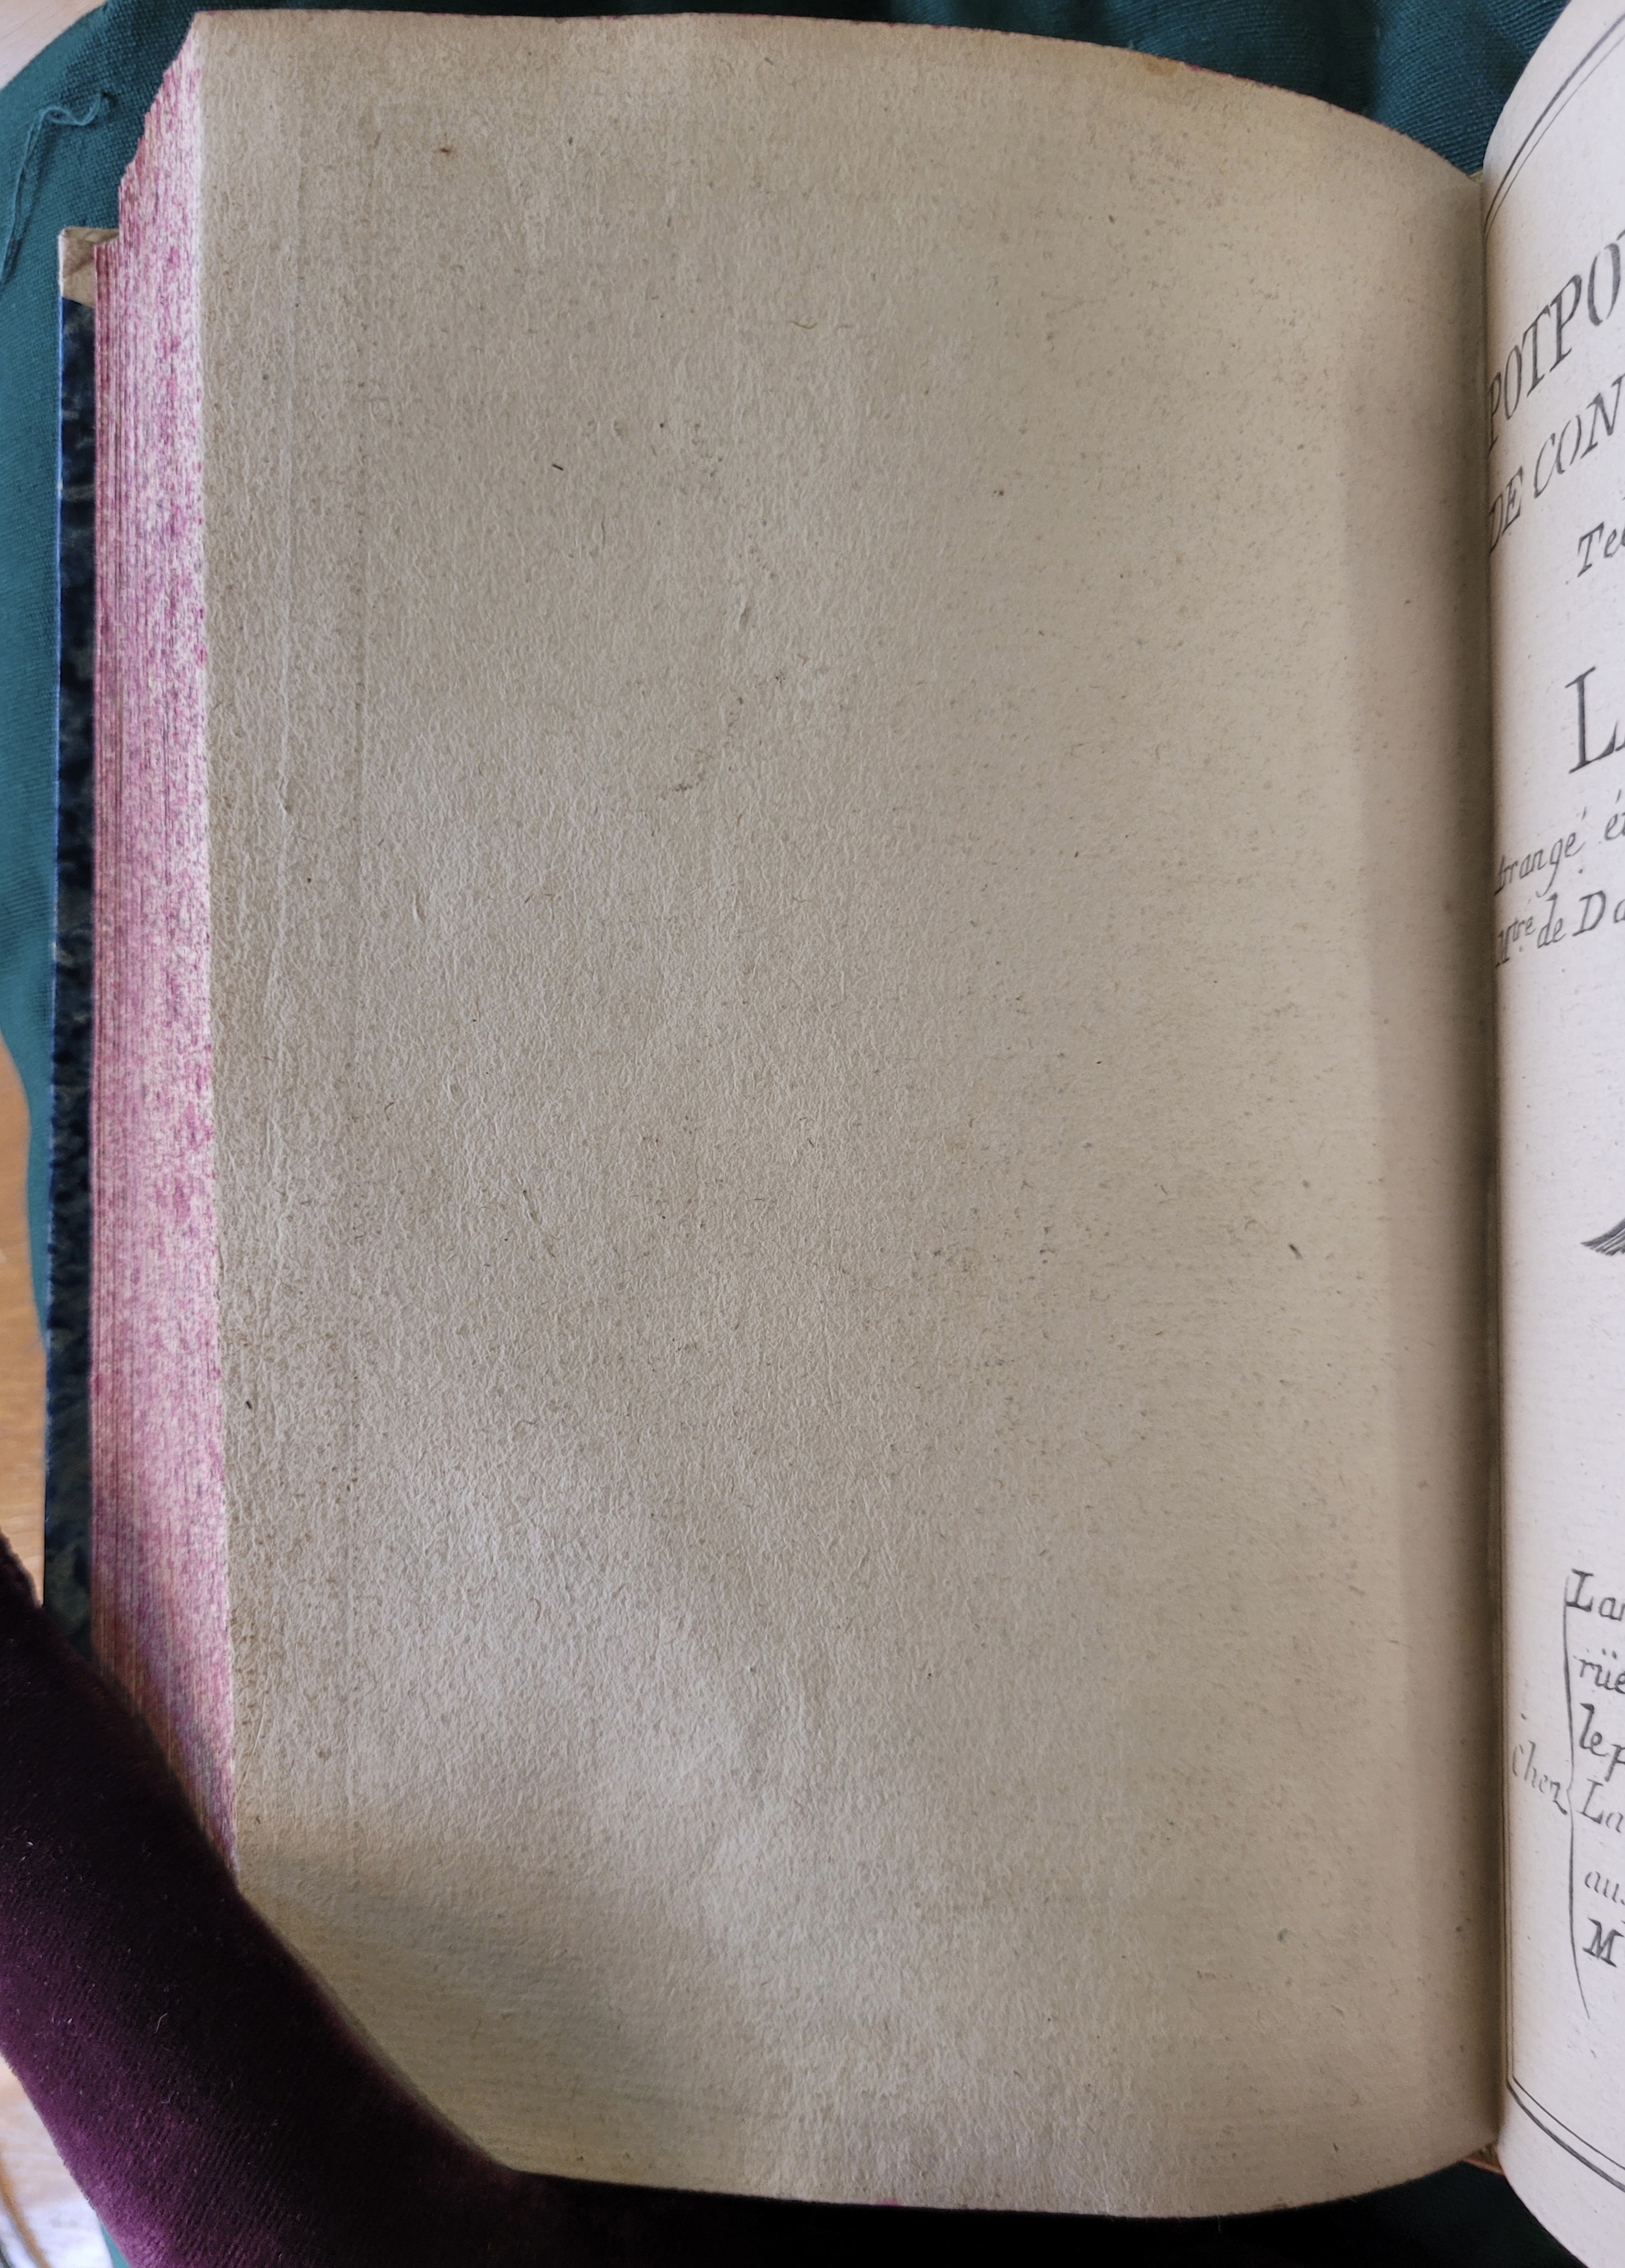 POTPO
DE CON
Te
L
Arangé é
Mtre de Da
Lar
rüe
le p
chez La
au
M